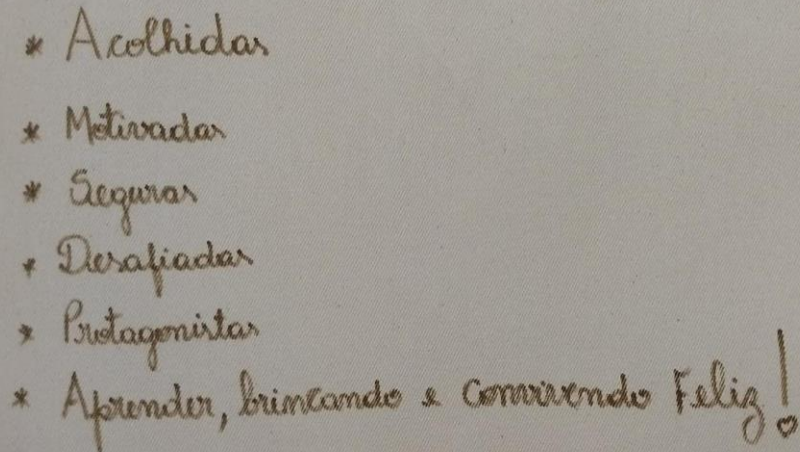 * Acolhidas
* Motivadas
* Seguras
* Desafiadas
* Protagonistas
* Aprender, brincando e convivendo Feliz!